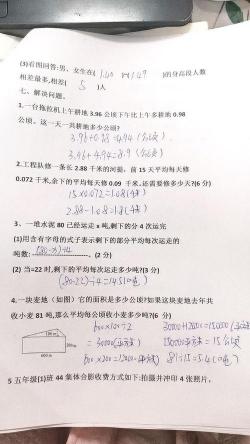 (3)看图回答:男、女生在( 1.40 )~( 1.49 )的身高段人数
相差最多,相差( 5 )人
七、解决问题。
1.一台拖拉机上午耕地 3.96 公顷下午比上午多耕地 0.98
公顷。这一天一共耕地多少公顷?
3.96+0.98=4.94(公顷)
3.96+4.94=8.9(公顷)
2.工程队修一条长 2.88 千米的河堤。前 15 天平均每天修
0.072 千米,余下的平均每天修 0.09 千米,还需要修多少天?(6 分)
15×0.072=1.08(千米)
2.88-1.08=1.8(千米)
3、一堆水泥 80 已经运走 x 吨,剩下的分 4 次运完
(1)用含有字母的式子表示剩下的部分平均每次运走的
吨数: (80-x)÷4 (2 分)
(2) 当=22 时,剩下的平均每次运走多少吨?(3 分)
(80-22)÷4=14.5(吨)
4.一块麦地(如图)它的面积是多少公顷?如果这块麦地去年共
收小麦 81 吨,那么平均每公顷收小麦多少吨?(6 分)
100 m
200m
600 m
600×100÷2
=30000(平方米)
600×200=120000(平方米)
30000+120000=150000(平方米)
150000平方米=15公顷
81÷15=5.4(吨)
5 五年级(1)班 44 集体合影收费方式如下:拍摄并冲印 4 张照片,